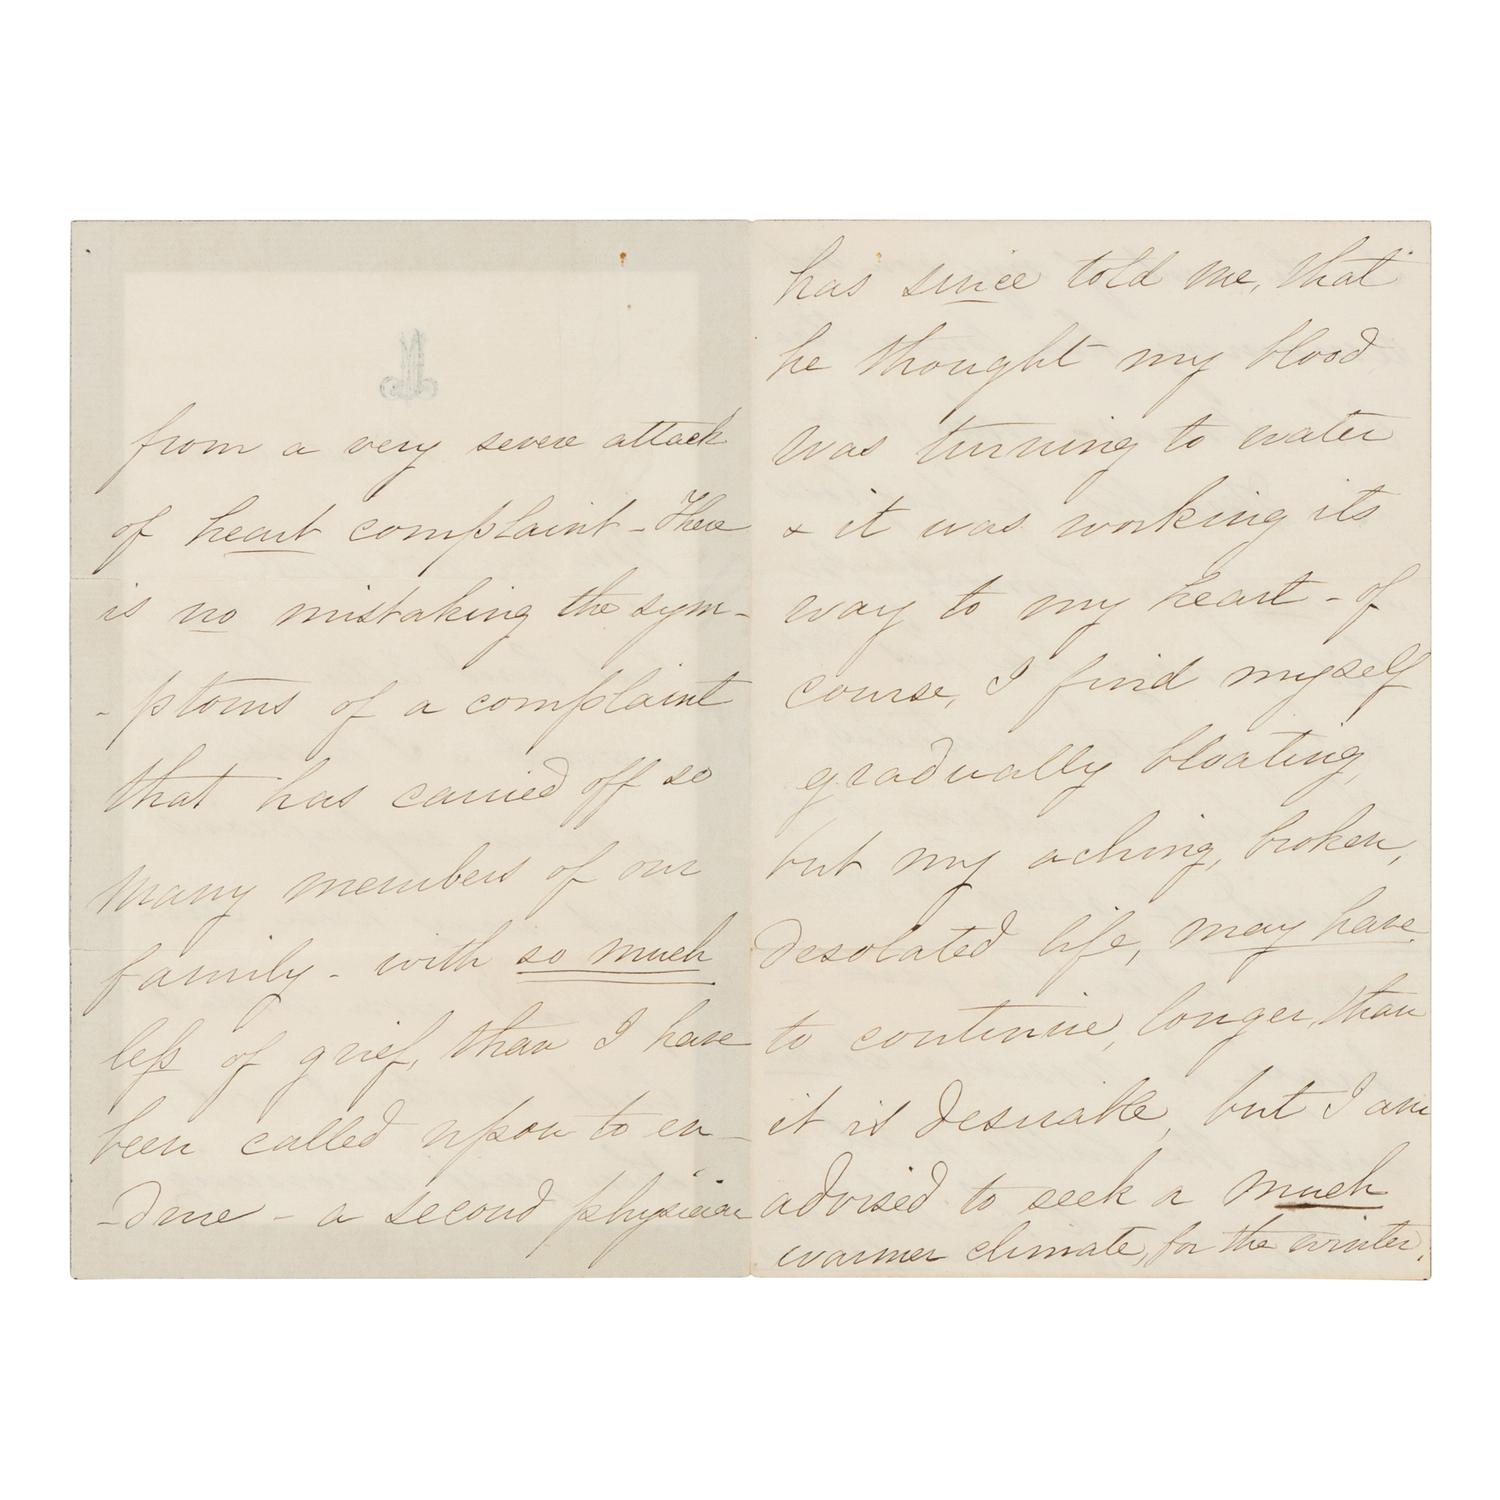 from a very severe attack
of heart complaint - There
is no mistaking the sym-
- ptoms of a complaint
that has carried off so
many members of our
family - with so much
less of grief, than I have
been called upon to en-
-dure - a second physician
has since told me, that
he thought my blood
was turning to water
& it was working its
way to my heart - of
course, I find myself
gradually bloating,
but my aching, broken,
desolated life, may have,
to continue, longer, than
it is desirable, but I am
advised to seek a much
warmer climate, for the winter,